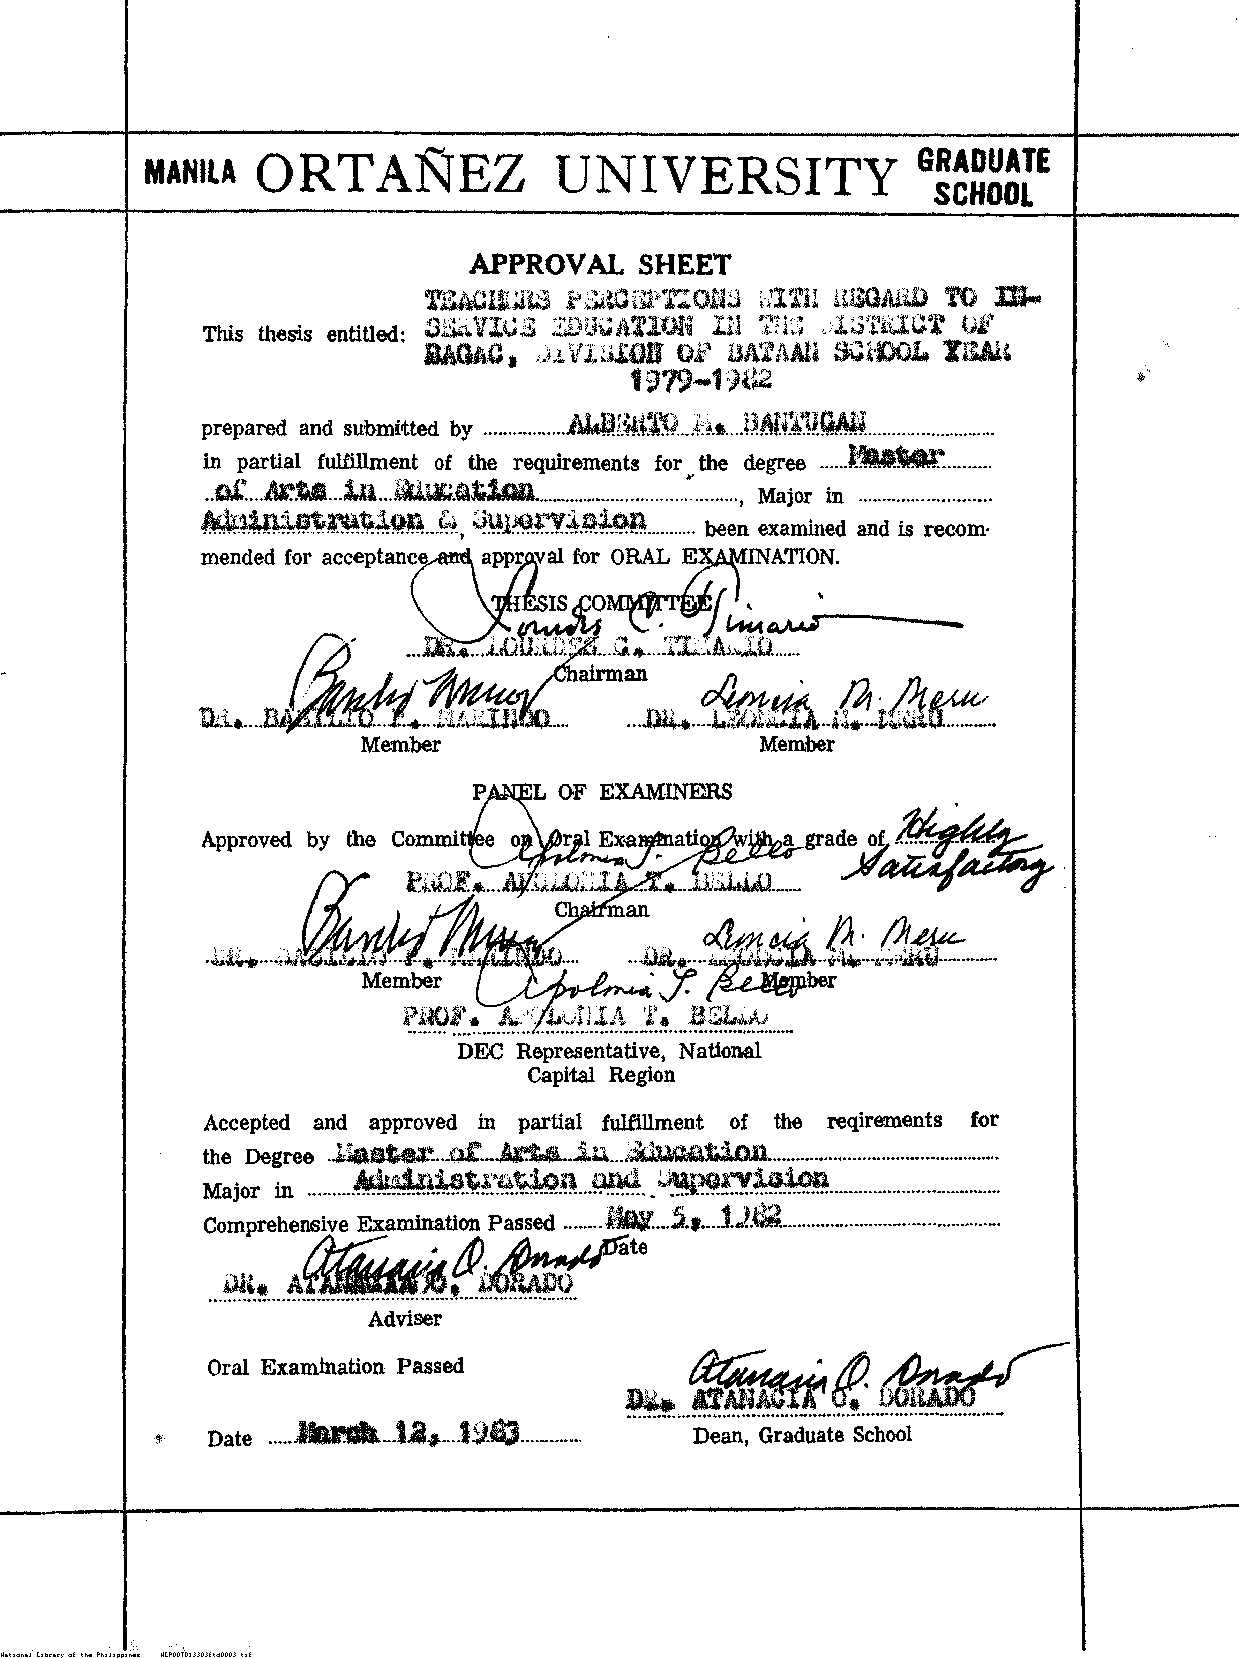 MANILA ORTAÑEZ UNIVERSITY GRADUATE SCHOOL
APPROVAL SHEET
TEACHERS PERCEPTIONS WITH REGARD TO IN-
This thesis entitled: SERVICE EDUCATION IN THE DISTRICT OF
BAGAC, DIVISION OF BATAAN SCHOOL YEAR
1979-1982
prepared and submitted by ALBERTO M. BANTUGAN
in partial fulfillment of the requirements for the degree Master
of Arts in Education, Major in
Administration & Supervision, been examined and is recom-
mended for acceptance and approval for ORAL EXAMINATION.
THESIS COMMITTEE
Lourdes C. Timario
DR. LOURDES C. TIMARIO
Chairman
DR. BASILIO P. MARINDO DR. LEONCIA M. MERU
Leoncia M. Meru
Member Member
PANEL OF EXAMINERS
Approved by the Committee on Oral Examination with a grade of Highly
Satisfactory
Apolonia T. Bello
PROF. APOLONIA T. BELLO
Chairman
Leoncia M. Meru
DR. BASILIO P. MARINDO DR. LEONCIA M. MERU
Member Member
Apolonia T. Bello
PROF. APOLONIA T. BELLO
DEC Representative, National
Capital Region
Accepted and approved in partial fulfillment of the reqirements for
the Degree Master of Arts in Education
Major in Administration and Supervision
Comprehensive Examination Passed May 5, 1982
Date
Atanacia O. Dorado
DR. ATANACIA O. DORADO
Adviser
Oral Examination Passed
Atanacia O. Dorado
DR. ATANACIA O. DORADO
Date March 12, 1983 Dean, Graduate School
National Library of the Philippines